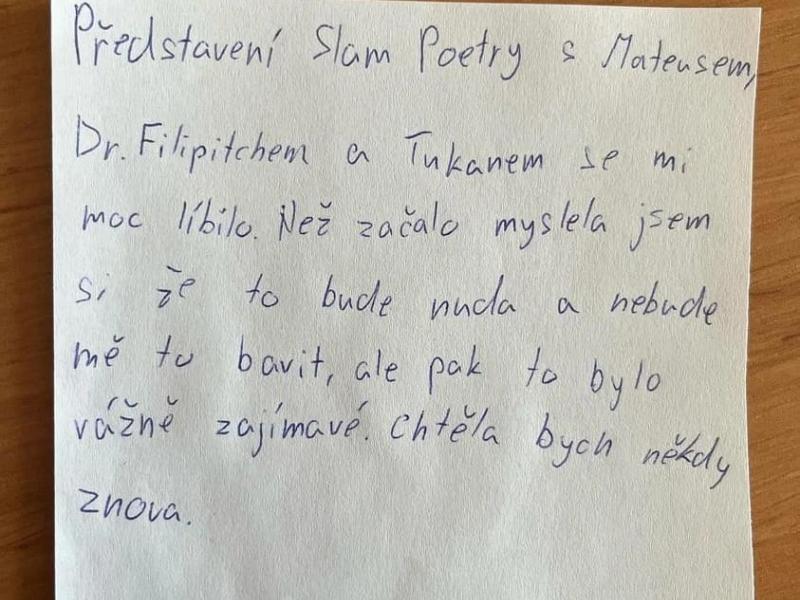 Představení Slam Poetry s Mateusem,
Dr. Filipitchem a Tukanem se mi
moc líbilo. Než začalo myslela jsem
si že to bude nuda a nebude
mě to bavit, ale pak to bylo
vážně zajímavé. Chtěla bych někdy
znova.